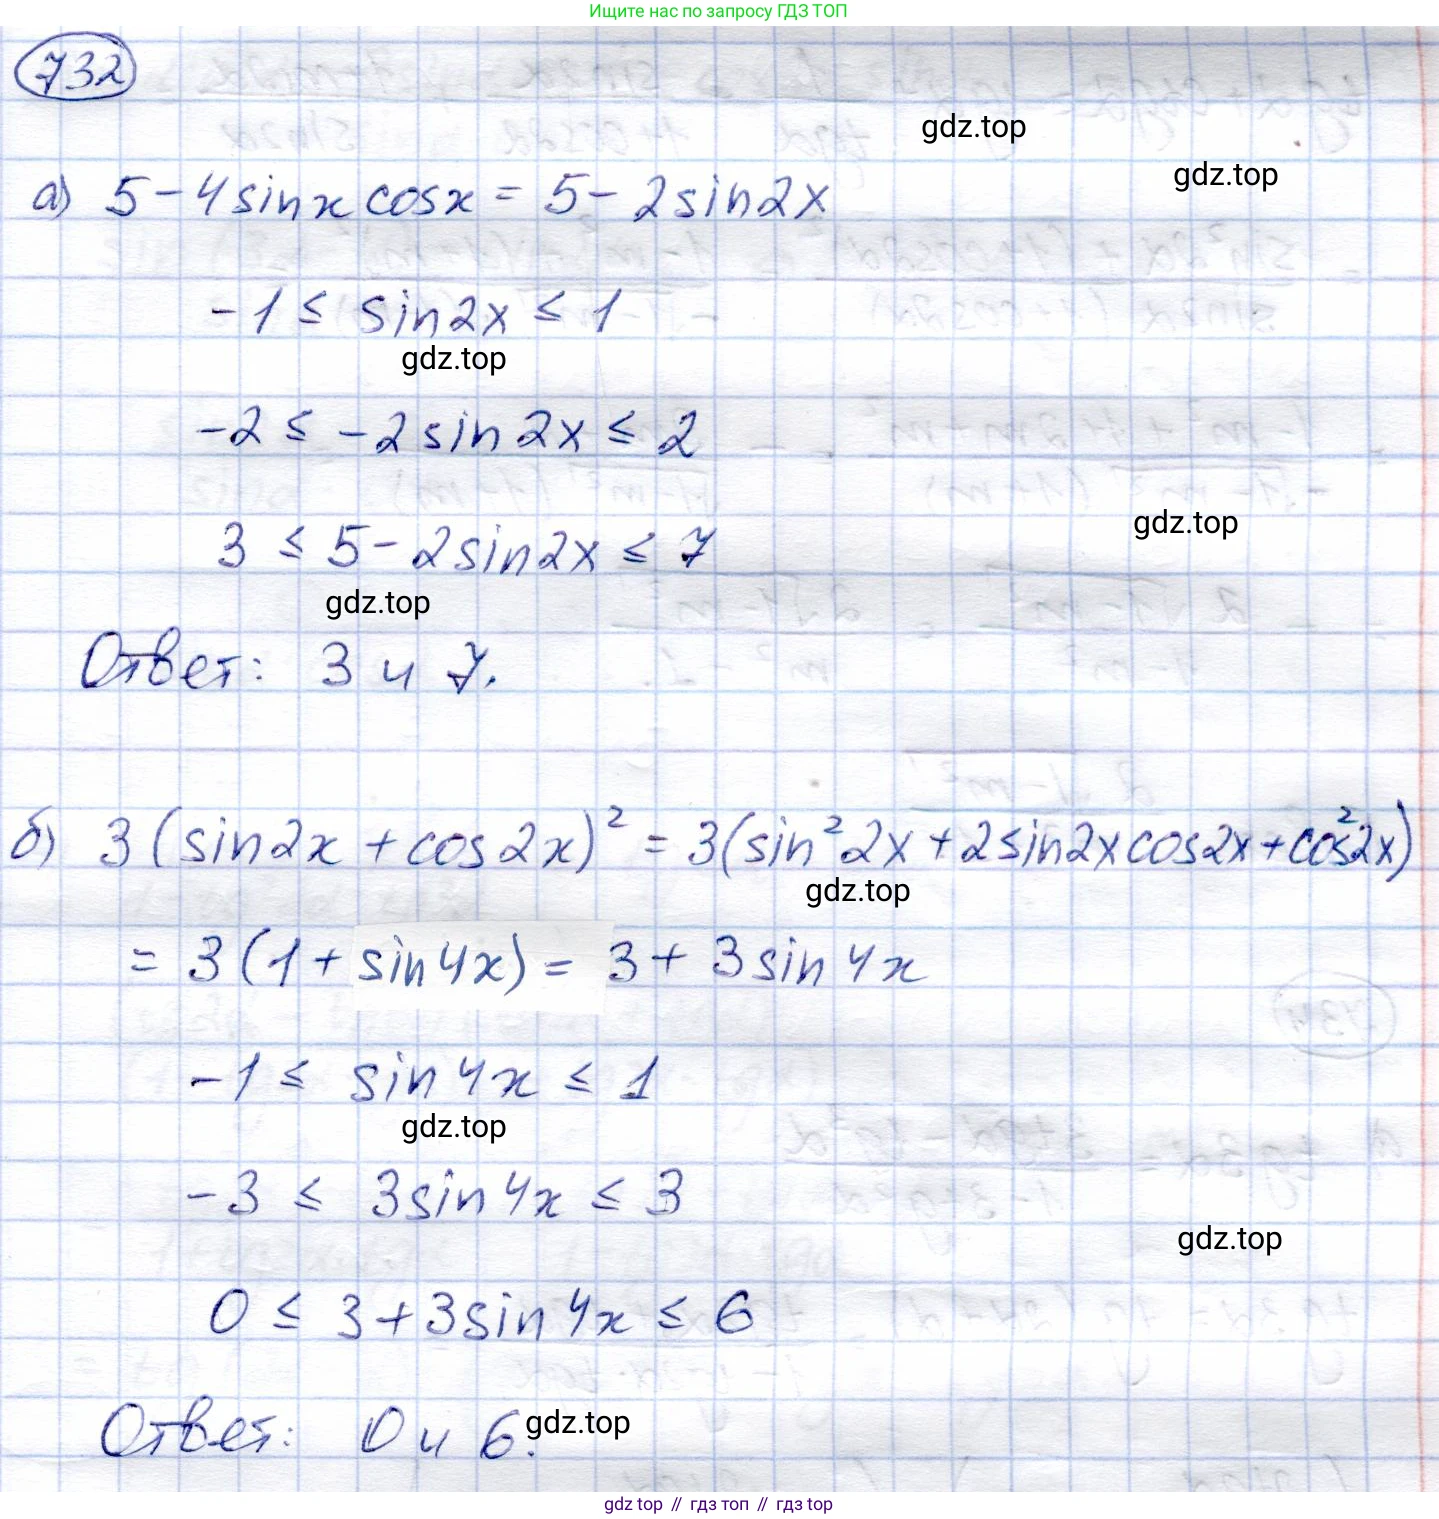 Ищите нас по запросу ГДЗ ТОП
732
gdz.top
gdz.top
а) 5 - 4 sin x cos x = 5 - 2 sin 2x
-1 ≤ sin 2x ≤ 1
gdz.top
-2 ≤ -2 sin 2x ≤ 2
gdz.top
3 ≤ 5 - 2 sin 2x ≤ 7
gdz.top
Ответ: 3 и 7.
б) 3 (sin 2x + cos 2x)² = 3 (sin² 2x + 2 sin 2x cos 2x + cos² 2x)
gdz.top
= 3 (1 + sin 4x) = 3 + 3 sin 4x
-1 ≤ sin 4x ≤ 1
gdz.top
-3 ≤ 3 sin 4x ≤ 3
gdz.top
0 ≤ 3 + 3 sin 4x ≤ 6
Ответ: 0 и 6.
gdz.top
gdz top // гдз топ // gdz top